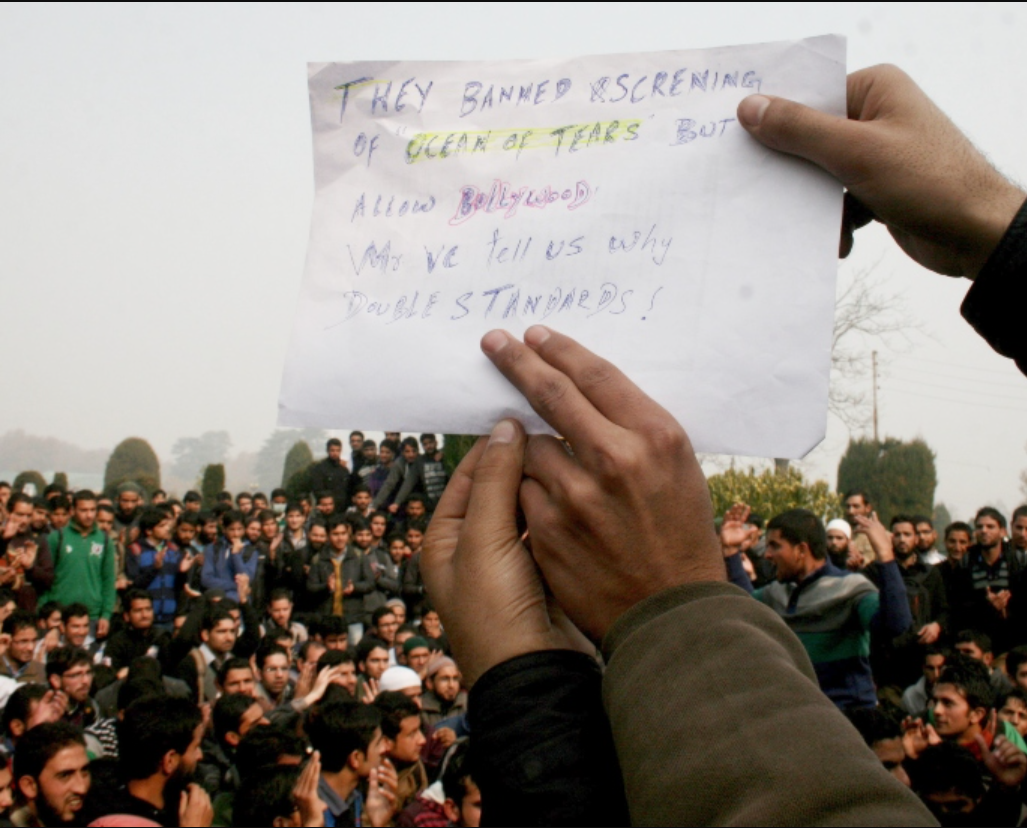 THEY BANNED SCRENING
OF "OCEAN OF TEARS" BUT
ALLOW BOLLYWOOD.
Mr VC tell us why
DOUBLE STANDARDS!